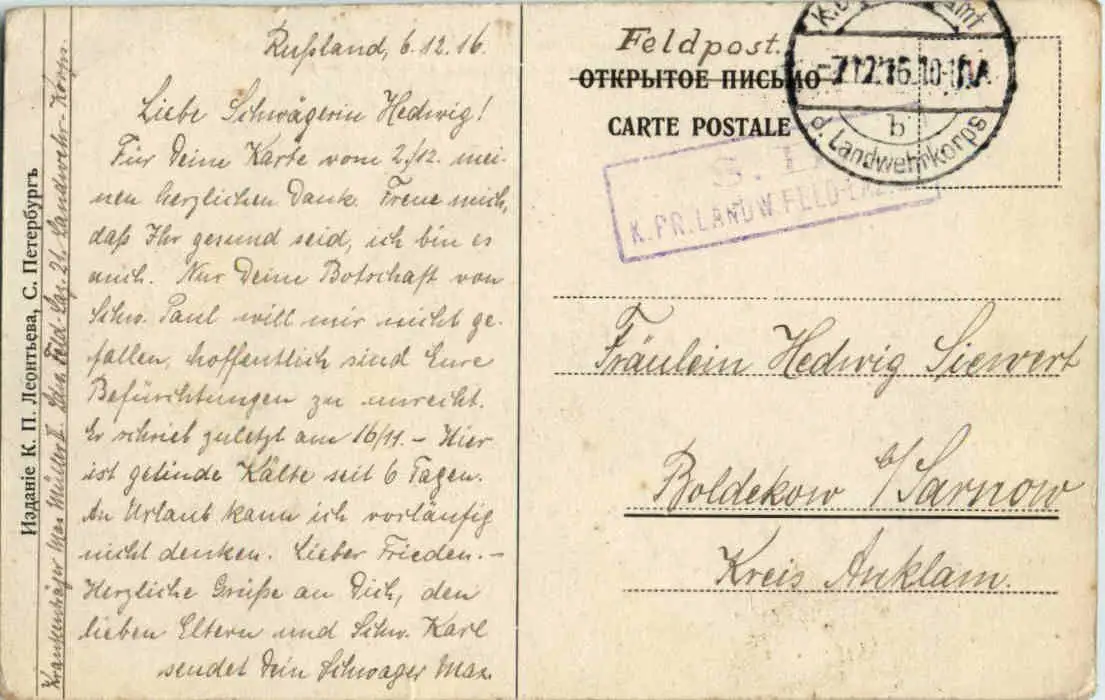 Rußland, 6.12.16.
Liebe Schwägerin Hedwig!
Für Deine Karte vom 2./12. mei-
nen herzlichen Dank. Freue mich,
daß Ihr gesund seid, ich bin es
auch. Nur Deine Botschaft von
Schw. Paul will mir nicht ge-
fallen, hoffentlich sind Eure
Befürchtungen zu unrecht.
Er schrieb zuletzt am 16/11. – Hier
ist gelinde Kälte seit 6 Tagen.
An Urlaub kann ich vorläufig
nicht denken. Lieber Frieden. –
Herzliche Grüße an Dich, den
lieben Eltern und Schw. Karl
sendet Dein Schwager Max.
Krankenträger Max Müller II. Feld-Laz. 21. Landwehr-Korps.
Изданіе К. П. Леонтьева, С. Петербургъ
Feldpost.
ОТКРЫТОЕ ПИСЬМО
CARTE POSTALE
-7.12.16.10-11
b
d. Landwehrkorps
S.
K.PR.LANDW.FELD-LAZ.
Fräulein Hedwig Siewert
Boldekow b/Sarnow
Kreis Anklam.